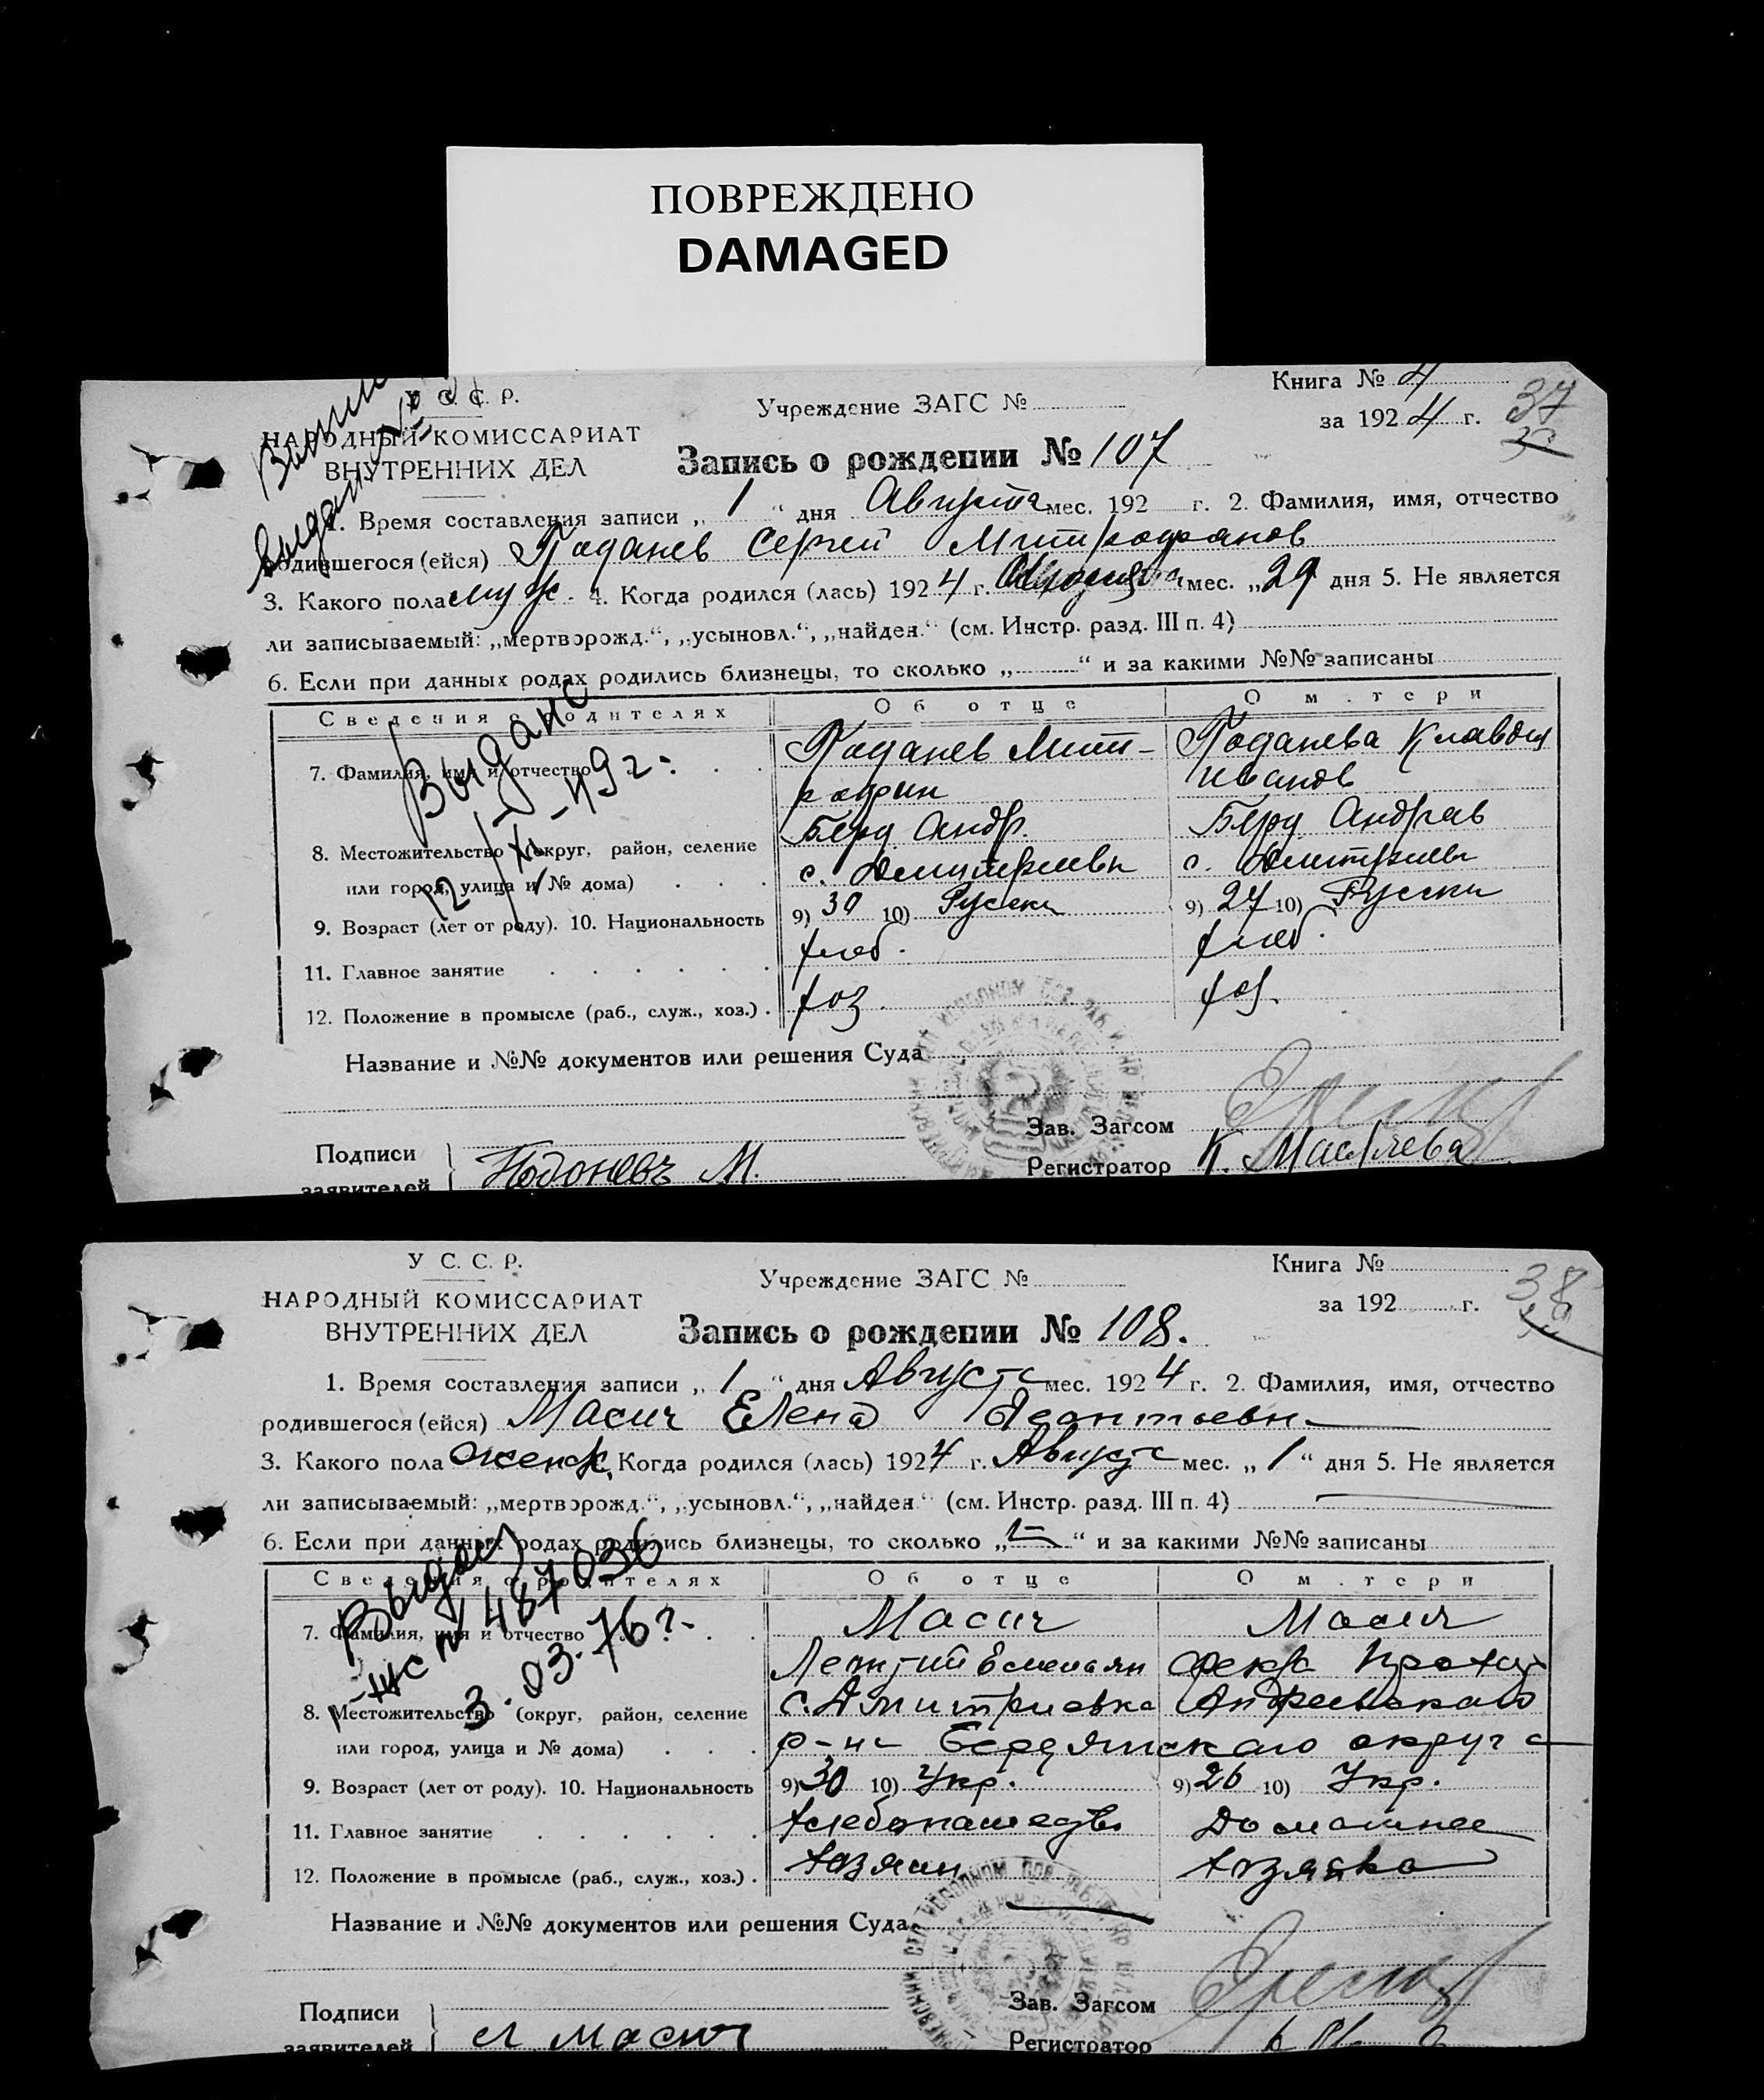 ПОВРЕЖДЕНО
DAMAGED
У С. С. Р.
НАРОДНЫЙ КОМИССАРИАТ
ВНУТРЕННИХ ДЕЛ
Учреждение ЗАГС №
Книга № 4
за 1924 г.
37
Запись о рождении № 107
1. Время составления записи „ 1 “ дня Августа мес. 192 г. 2. Фамилия, имя, отчество
родившегося (ейся) Сергей Митрофанов
3. Какого пола муж. 4. Когда родился (лась) 1924 г. мес. „29 дня 5. Не является
ли записываемый: „мертворожд.“, „усыновл.“, „найден.“ (см. Инстр. разд. III п. 4)
6. Если при данных родах родились близнецы, то сколько „ “ и за какими №№ записаны
Сведения о родителях Об отце О м.тери
7. Фамилия, имя и отчество Митрофан Клавдия Иванов
8. Местожительство (округ, район, селение
или город, улица и № дома) Берд Андр. с. Дмитриевка Берд Андреев с. Дмитриевк
9. Возраст (лет от роду). 10. Национальность 9) 30 10) Русски 9) 27 10) Русски
11. Главное занятие хлеб. хлеб.
12. Положение в промысле (раб., служ., хоз.) хоз. хоз.
Выдано
12/XI-49 г.
Название и №№ документов или решения Суда
Зав. Загсом
Подписи
заявителей М.
Регистратор К.
У С. С. Р.
НАРОДНЫЙ КОМИССАРИАТ
ВНУТРЕННИХ ДЕЛ
Учреждение ЗАГС №
Книга №
за 192 г.
38
Запись о рождении № 108.
1. Время составления записи „ 1 “ дня Августа мес. 1924 г. 2. Фамилия, имя, отчество
родившегося (ейся) Масич Елена Леонтьевн
3. Какого пола женск. Когда родился (лась) 1924 г. Августа мес. „ 1 “ дня 5. Не является
ли записываемый: „мертворожд.“, „усыновл.“, „найден.“ (см. Инстр. разд. III п. 4)
6. Если при данных родах родились близнецы, то сколько „ “ и за какими №№ записаны
Сведения о родителях Об отце О м.тери
7. Фамилия, имя и отчество Масич Масич
Емельян
8. Местожительство (округ, район, селение с. Дмитриевка Андреевского
или город, улица и № дома) р-на Бердянского округа
9. Возраст (лет от роду). 10. Национальность 9) 30 10) Укр. 9) 26 10) Укр.
11. Главное занятие хлебопашество Домашнее
12. Положение в промысле (раб., служ., хоз.) хозяин хозяйка
№ 487036
3.03.76 г.
Название и №№ документов или решения Суда
Зав. Загсом
Подписи
заявителей Масич
Регистратор